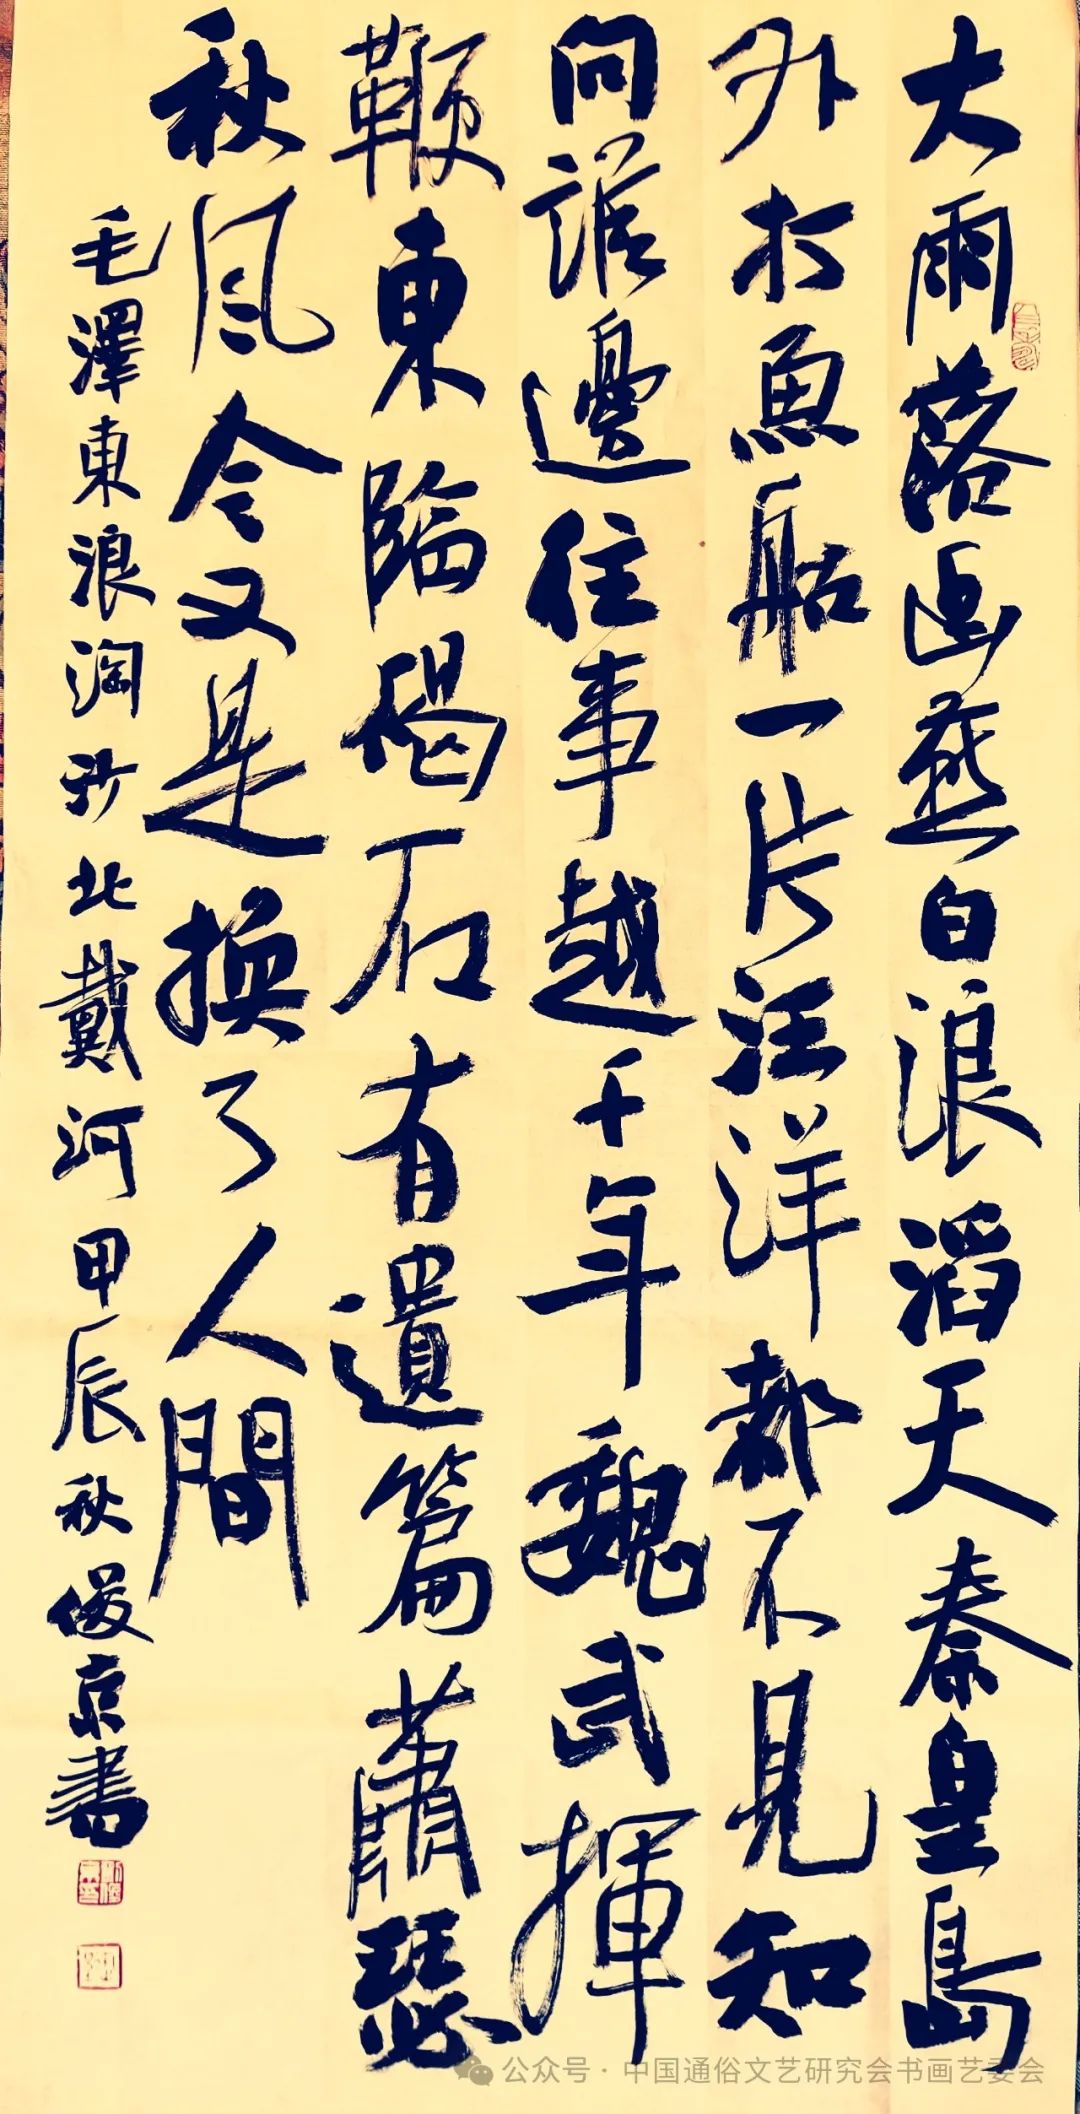 大雨落幽燕白浪滔天秦皇島
外打魚船一片汪洋都不見知
向誰邊往事越千年魏武揮
鞭東臨碣石有遺篇蕭瑟
秋風今又是換了人間
毛澤東浪淘沙北戴河甲辰秋俊京書
公众号·中国通俗文艺研究会书画艺委会